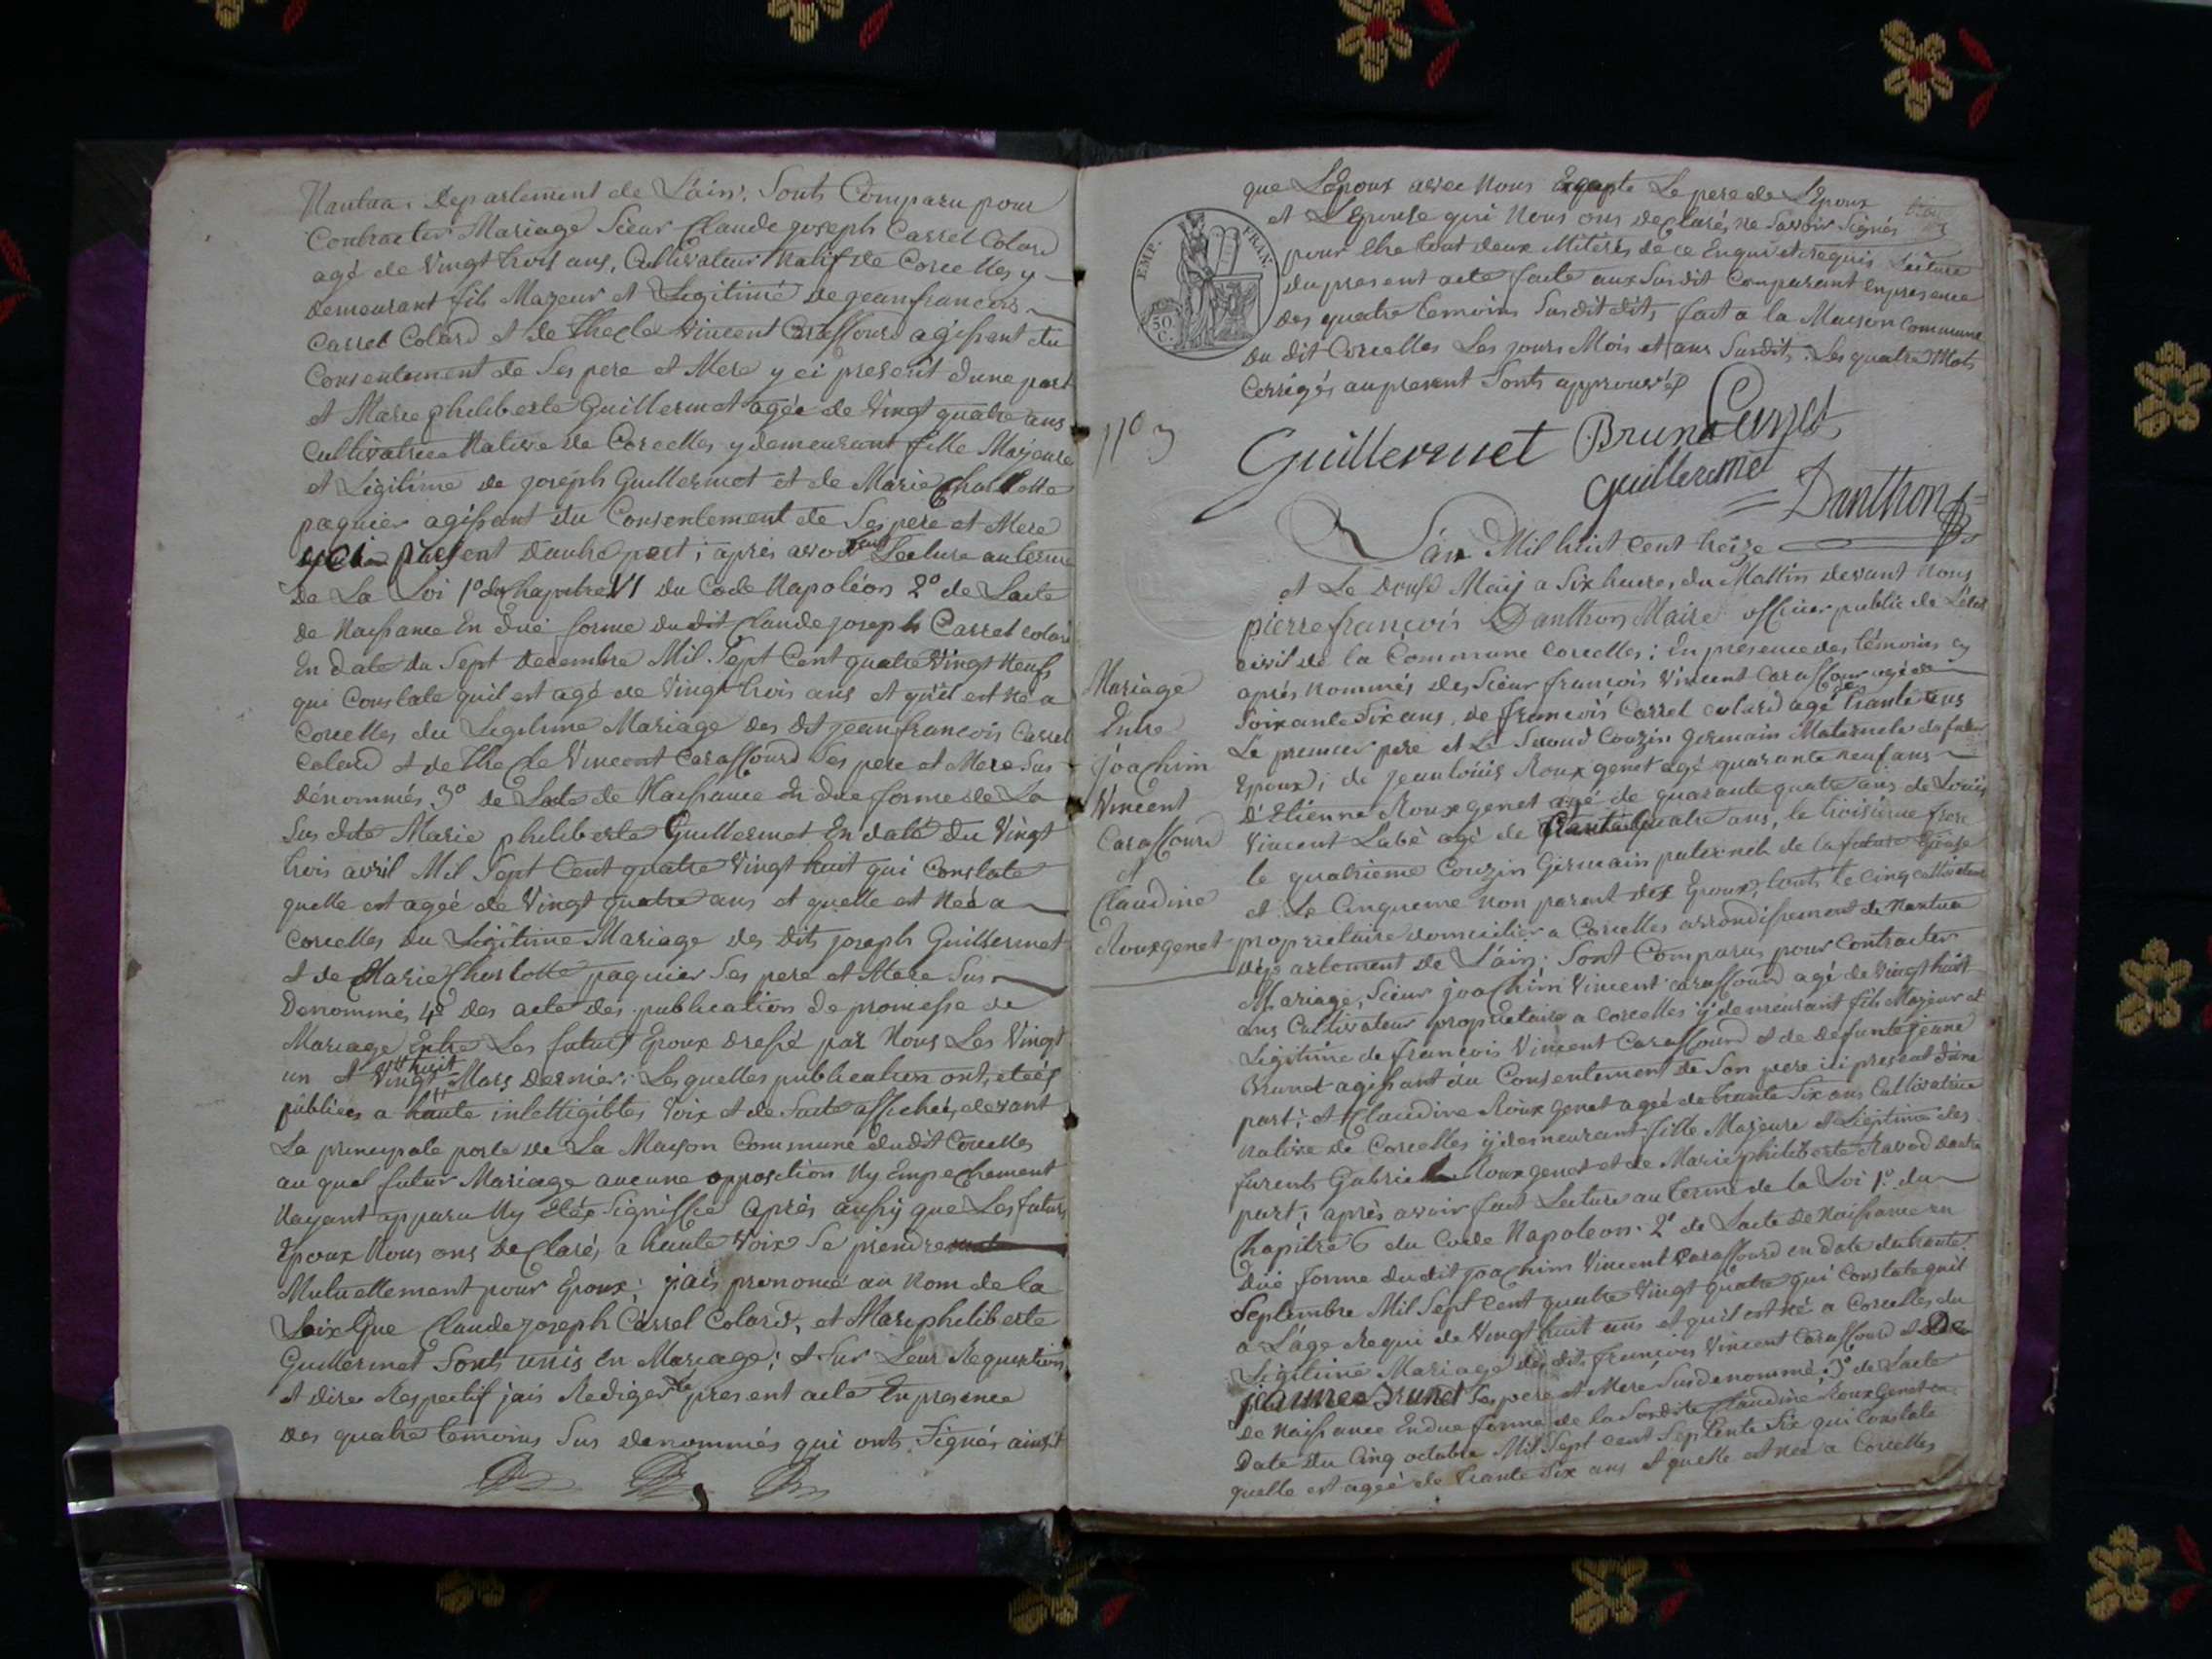 Nantua Departement de L'ain, Sonts Comparu pour
Contracter Mariage Sieur Claude joseph Carrel Colard
agé de Vingt trois ans, Cultivateur Natif de Corcelles y
demeurant fils Mageur et Legitimé de jean francois
Carrel Colard et de Thecle Vincent Carassourd agissant du
Consentement de Ses pere et Mere y ci present dune part
et Marie philiberte Guillermet agée de Vingt quatre ans
Cultivatrice Native de Corcelles y demeurant fille Majeure
et Légitime de joseph Guillermet et de Marie Charlotte
paquier agissant du Consentement de Ses pere et Mere
present dautre part; aprés avoir fait Lecture au terme
De La Loi 1º du Chapitre VI du Code Napoléon 2º de Lacte
de Naissance En düe forme du dit Claude joseph Carrel colard
En date du Sept Decembre Mil Sept Cent quatre Vingt Neuf
qui Constate quil est agé de Vingt trois ans et qu'il est Né a
Corcelles du Legitime Mariage des dt jean francois Carrel
Colard et de Thecle Vincent Carassourd Ses pere et Mere Sus
dénommés 3º de Lacte de Naissance En due forme de La
Sus dite Marie philiberte Guillermet En daté du Vingt
trois avril Mil Sept Cent quatre Vingt huit qui Constate
quelle est ageé de Vingt quatre ans et quelle est Neé a
Corcelles du Légitime Mariage des dits joseph Guillermet
et de Marie Charlotte paquier Ses pere et Mere Sus
Denommés 4º des acte des publication de promesse de
Mariage Entre Les futurs Epoux dressé par Nous Les Vingt
un et Vingt huit Mars Dernier; Les quelles publication ont, eteés
publieés a haute intelligibles Voix et de Suite affichés devant
La principale porte de La Mayson Commune dudit Corcelles
au quel futur Mariage aucune opposition Ny Empechement
Nayant apparu Ny Etéz Signiffié Aprés aussy que Les futurs
Epoux Nous ons Declarés a haute Voix Se prendre
Mutuellement pour Epoux; jais prenoncé au Nom de la
Loix Que Claude joseph Carrel Colard, et Marie philiberte
Guillermet Sonts unis En Mariage; et Sur Leur Requisition
et dire Respectif jais Rediger le present acte En presence
des quatre temoins Sus denommés qui onts Signés ainsi
que L'Epoux avec Nous Excepte Le pere de L'Epoux
et L'Epouse qui Nous ons declarés ne Savoir Signés
pour Etre tout deux de ce Enquis et requis Lecture
du present acte faite aux Susdit Comparant En presence
des quatre temoins Susditdits, fait a la Mayson Commune
du dit Corcelles Les jours Mois et ans Susdits. Les quatre Mots
Corrigés au present Sonts approuvés
EMP. FRAN.
50 C.
Nº 3
Guillermet Brunet Carrel
guillermet
Danthon
L'an Mil huit cent treize
et Le Douse Maij a Six heures du Mattin devant Nous
pierre françois Danthon Maire officier public de L'état
civil de la Commune Corcelles; En presence des témoins cy
aprés Nommés des Sieur françois Vincent Carassour agé de
Soixante Six ans, de françois Carrel colard agé de trante ans
Le premier pere et Le Second Couzin Germain Maternele du futur
Epoux; de jean louis Roux genet agé quarante neuf ans
d'Etienne Roux genet agé de quarante quatre ans de Louis
Vincent Labé agé de quatre ans, le troisieme frere
le quatrieme Couzin Germain paternele de la future Epouse
et Le Cinquieme Non parent des Epoux, touts le cinq cultivateur
proprietaire domicilier a Corcelles arrondissement de Nantua
Departement de L'ain; Sont Comparus pour Contracter
Mariage, Sieur joachim Vincent Carassourd agé de Vingt huit
ans Cultivateur proprietaire a Corcelles y demeurant fils Majeur et
Légitime de francois Vincent Carassourd et de defunte jeanne
Brunet agissant du Consentement de Son pere ici present d'une
part; et Claudine Roux genet ageé de trante Six ans Cultivatrice
Native de Corcelles y demeurant fille Majeure et Légitime des
furents Gabriel Roux genet et de Marie philiberte Ravod dautre
part; aprés avoir fait Lecture au terme de la Loi 1º du
Chapitre 6 du Code Napoleon. 2º de Lacte de Naissance en
düe forme dudit joachim Vincent Carassourd en date du trante
Septembre Mil Sept cent quatre Vingt quatre qui Constate quil
a L'age Requi de Vingt huit ans et quil est né a Corcelles du
Légitime Mariage des dits françois Vincent Carassourd et De
jeanne Brunet Ses pere et Mere Susdenommé; 3º de Lacte
de Naissance En due forme de la Susdite Claudine Roux Genet en
Date du Cinq octobre Mil Sept cent Septente Six qui Constate
quelle est ageé de trante Six ans et quelle est Neé a Corcelles
Mariage
Entre
joachim
Vincent
Carassourd
et
Claudine
Rouxgenet